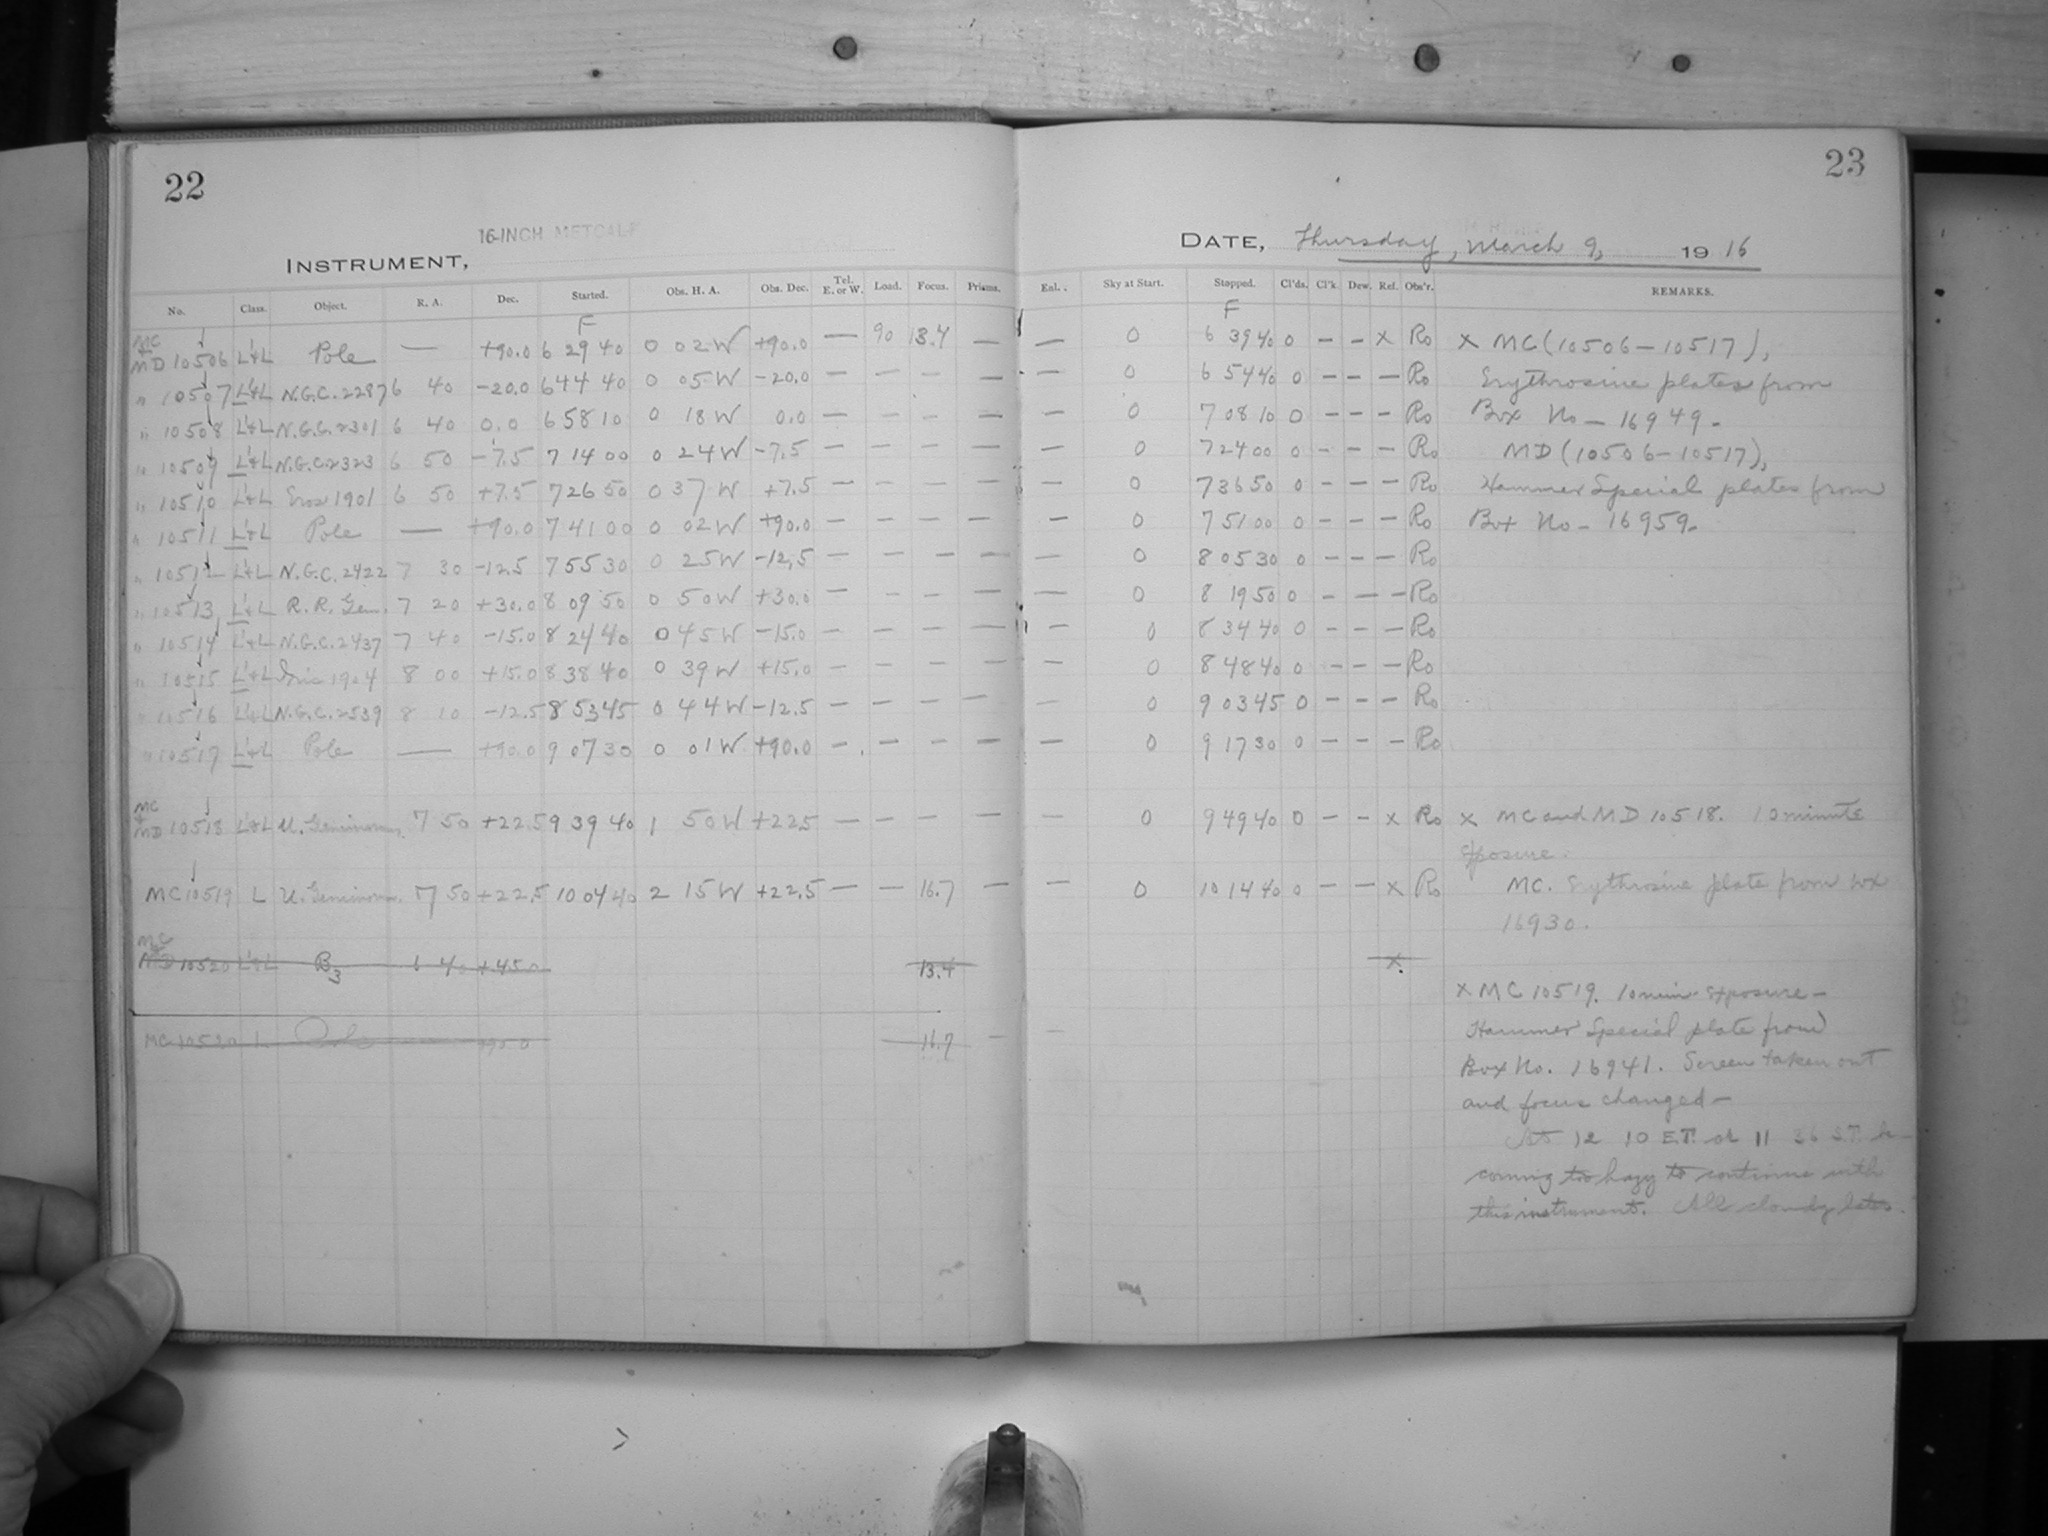 22
16-INCH METCALF
INSTRUMENT,
No. Class. Object. R. A. Dec. Started. Obs. H. A. Obs. Dec. Tel. E. or W. Load. Focus. Prisms.
F
MC + MD 10506 L'&L Pole — +90.0 6 29 40 0 02 W +90.0 — 90 13.4 —
" 10507 L'&L N.G.C. 2287 6 40 -20.0 6 44 40 0 05 W -20.0 — — — —
" 10508 L'&L N.G.C. 2301 6 40 0.0 6 58 10 0 18 W 0.0 — — — —
" 10509 L'&L N.G.C. 2323 6 50 -7.5 7 14 00 0 24 W -7.5 — — — —
" 10510 L'&L Eros 1901 6 50 +7.5 7 26 50 0 37 W +7.5 — — — —
" 10511 L'&L Pole — +90.0 7 41 00 0 02 W +90.0 — — — —
" 10512 L'&L N.G.C. 2422 7 30 -12.5 7 55 30 0 25 W -12.5 — — — —
" 10513 L'&L R. R. Gem. 7 20 +30.0 8 09 50 0 50 W +30.0 — — — —
" 10514 L'&L N.G.C. 2437 7 40 -15.0 8 24 40 0 45 W -15.0 — — — —
" 10515 L'&L 1904 8 00 +15.0 8 38 40 0 39 W +15.0 — — — —
" 10516 L'&L N.G.C. 2539 8 10 -12.5 8 53 45 0 44 W -12.5 — — — —
" 10517 L'&L Pole — +90.0 9 07 30 0 01 W +90.0 — — — —
MC + MD 10518 L'&L U. Geminorum 7 50 +22.5 9 39 40 1 50 W +22.5 — — — —
MC 10519 L U. Geminorum. 7 50 +22.5 10 04 40 2 15 W +22.5 — — 16.7 —
MC + MD 10520 L'&L B3 1 40 +45.0 13.4
MC 10520 L Pole — +90.0 16.7 —
23
DATE, Thursday, March 9, 1916
Enl. Sky at Start. Stopped. Cl'ds. Cl'k. Dew. Ref. Obs'r. REMARKS.
F
— 0 6 39 40 0 — — x Ro x MC (10506—10517),
— 0 6 54 40 0 — — — Ro Erythrosine plates from
— 0 7 08 10 0 — — — Ro Box No — 16949.
— 0 7 24 00 0 — — — Ro MD (10506—10517),
— 0 7 36 50 0 — — — Ro Hammer Special plates from
— 0 7 51 00 0 — — — Ro Box No — 16959.
— 0 8 05 30 0 — — — Ro
— 0 8 19 50 0 — — — Ro
— 0 8 34 40 0 — — — Ro
— 0 8 48 40 0 — — — Ro
— 0 9 03 45 0 — — — Ro
— 0 9 17 30 0 — — — Ro
— 0 9 49 40 0 — — x Ro x MC and MD 10518. 10 minute
exposure.
— 0 10 14 40 0 — — x Ro MC. Erythrosine plate from box
16930.
x
x MC 10519. 10 min. exposure —
Hammer Special plate from
Box No. 16941. Screen taken out
and focus changed —
At 12 10 E.T. or 11 36 S.T. be-
coming too hazy to continue with
this instrument. All cloudy later.